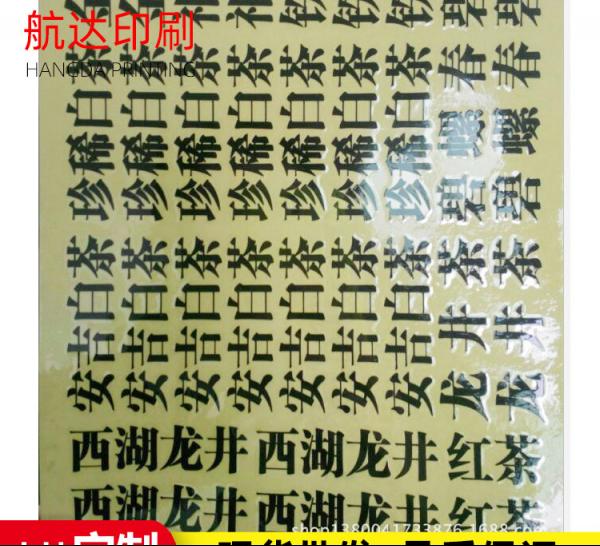 航达印刷
HANGDA PRINTING
珍稀白茶 珍稀白茶 珍稀白茶 珍稀白茶 珍稀白茶 珍稀白茶 珍稀白茶 碧螺春 碧螺春
安吉白茶 安吉白茶 安吉白茶 安吉白茶 安吉白茶 安吉白茶 安吉白茶 龙井茶 龙井茶
西湖龙井 西湖龙井 红茶
西湖龙井 西湖龙井 红茶
shop1380041733876.1688.com
定制 现货批发